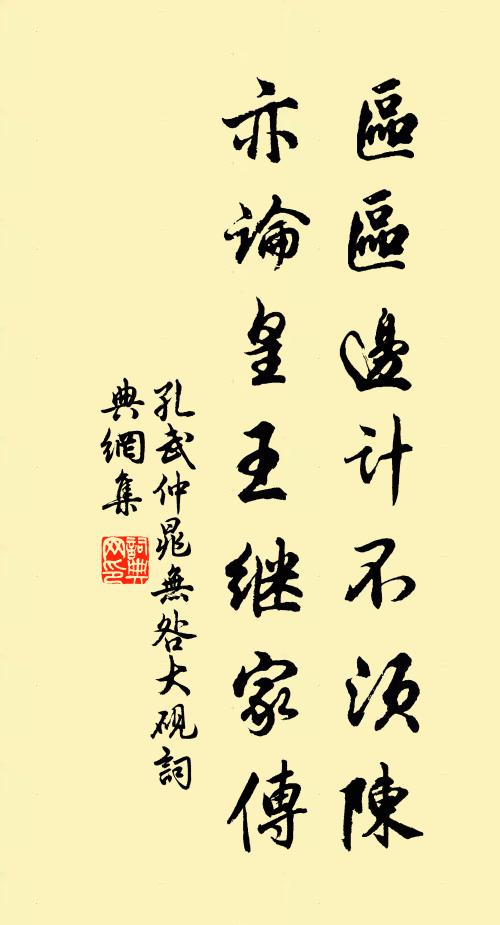 區區邊計不須陳
亦論皇王继家傳
孔武仲晁無咎大硯詞
典網集
詞典
网印